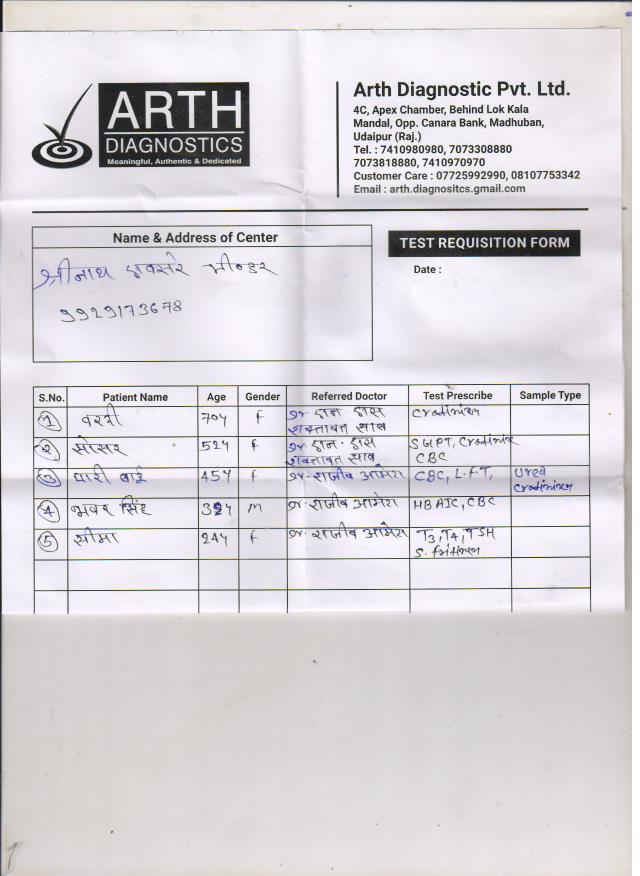 ARTH
DIAGNOSTICS
Meaningful, Authentic & Dedicated
Arth Diagnostic Pvt. Ltd.
4C, Apex Chamber, Behind Lok Kala
Mandal, Opp. Canara Bank, Madhuban,
Udaipur (Raj.)
Tel. : 7410980980, 7073308880
7073818880, 7410970970
Customer Care : 07725992990, 08107753342
Email : arth.diagnositcs.gmail.com
Name & Address of Center
श्रीनाथ भीण्डर
9929173678
TEST REQUISITION FORM
Date :
S.No. Patient Name Age Gender Referred Doctor Test Prescribe Sample Type
1 70y f डा. Creatininen
2 52y f डा. SGPT, Creatinine
CBC
3 बाई 45y f डा. राजीव आमेरा CBC, L.F.T, Urea
Creatininen
4 भवर सिंह 32y m डा. राजीव आमेरा HBAIC, CBC
5 सीमा 24y f डा. राजीव आमेरा T3, T4, TSH